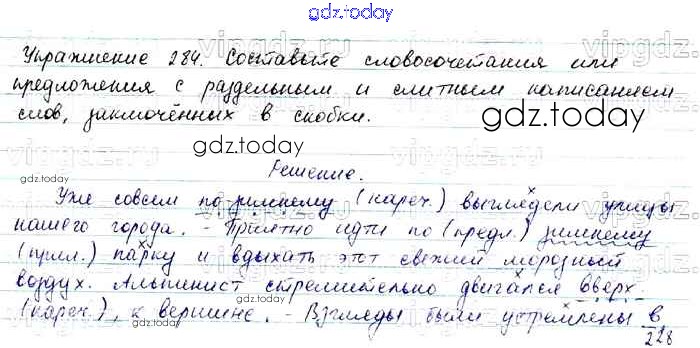 gdz.today
Упражнение 284. Составьте словосочетания или
предложения с раздельным и слитным написанием
слов, заключённых в скобки.
gdz.today
gdz.today
Решение.
gdz.today
Уже совсем по-зимнему (нареч.) выглядели улицы
нашего города. - Приятно идти по (предл.) зимнему
(прил.) парку и вдыхать этот свежий морозный
воздух. Альпинист стремительно двигался вверх
(нареч.), к вершине. - Взгляды были устремлены в
gdz.today
gdz.today
228